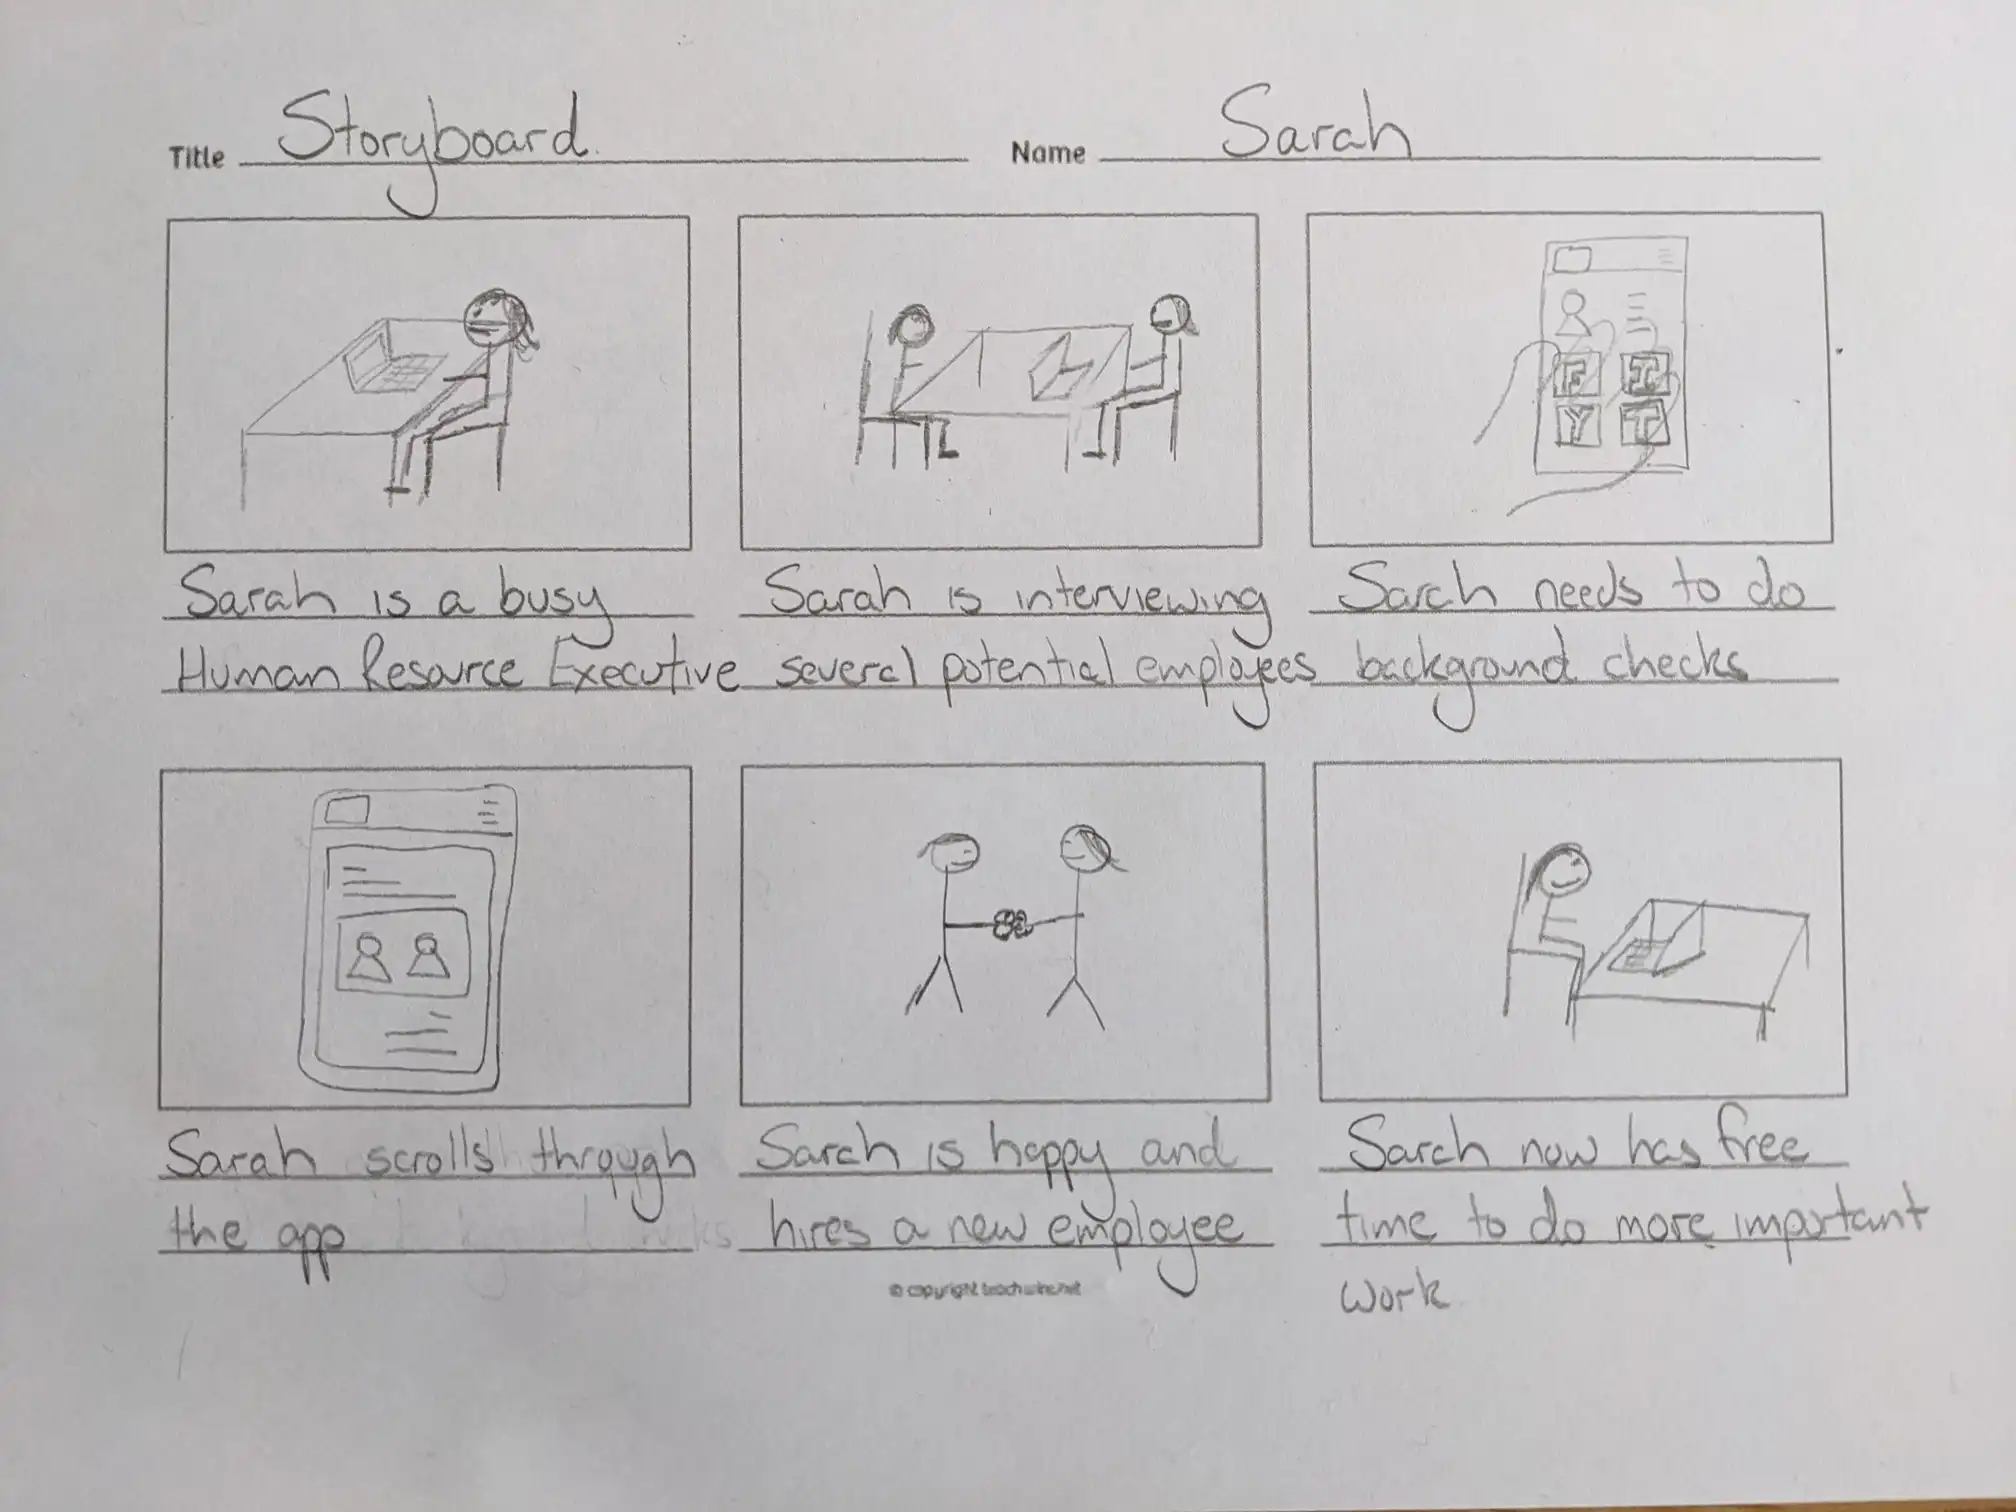 Title Storyboard.
Name Sarah
F I
Y T
Sarah is a busy
Human Resource Executive
Sarah is interviewing
several potential employees
Sarah needs to do
background checks
Sarah scrolls through
the app
Sarah is happy and
hires a new employee
Sarah now has free
time to do more important
work
© copyright